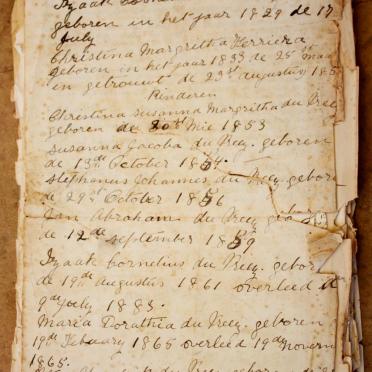 Izaak
geboren in het jaar 1829 de 17
July
Christina Margritha Herriera
geboren in het jaar 1833 de 25st Maa
en getrouwt de 23st augustus 185
Kinderen
Christina Susanna Margritha du Preez
geboren de 20st Mie 1853
Susanna Jacoba du Preez. geboren
de 13de October 1854.
Stephanus Johannes du Preez gebore
de 29st October 1856
Jan Abraham du Preez gebor
de 12de September 1859
Izaak Cornelius du Preez. gebor
de 19de augustus 1861 overleed d
9de July 1883.
Maria Dorathia du Preez. geboren
19de February 1865 overleed 19de novem
1865.